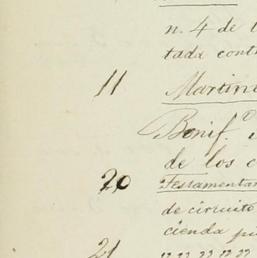 n. 4 de l
tada cont
11 Martine
Bonif.o
de los c
20 Testamentar
de circuito
cienda pu
21